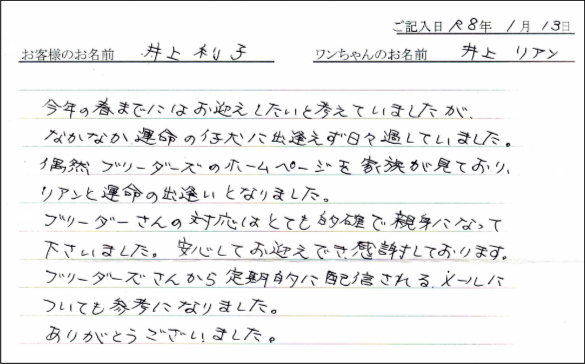 ご記入日 R8年 1月 13日
お客様のお名前 井上 利子 ワンちゃんのお名前 井上 リアン
今年の春までにはお迎えしたいと考えていましたが、
なかなか運命の仔犬に出逢えず日々過していました。
偶然ブリーダーズのホームページを家族が見ており、
リアンと運命の出逢いとなりました。
ブリーダーさんの対応はとても的確で親身になって
下さいました。安心してお迎えでき感謝しております。
ブリーダーズさんから定期的に配信されるメールに
ついても参考になりました。
ありがとうございました。